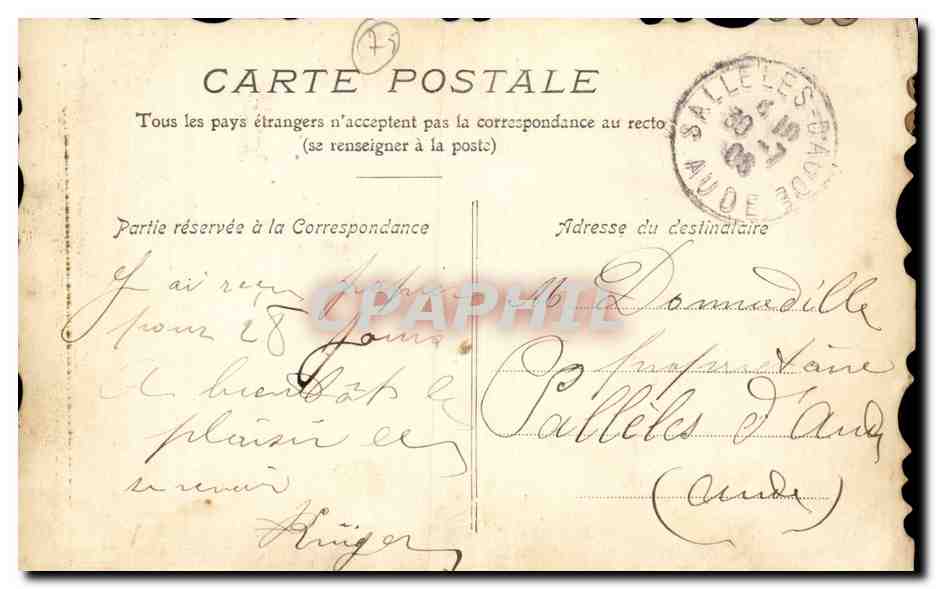 75
CARTE POSTALE
Tous les pays étrangers n'acceptent pas la correspondance au recto
(se renseigner à la poste)
SALLELES-D'AUDE
30 -7
08
AUDE
Partie réservée à la Correspondance
J'ai reçu
pour 28 jours
A bientôt le
plaisir de
se revoir
Krüger
Adresse du destinataire
M. Donnadille
propriétaire
Sallèles d'Aude
(Aude)
CPAPHIL